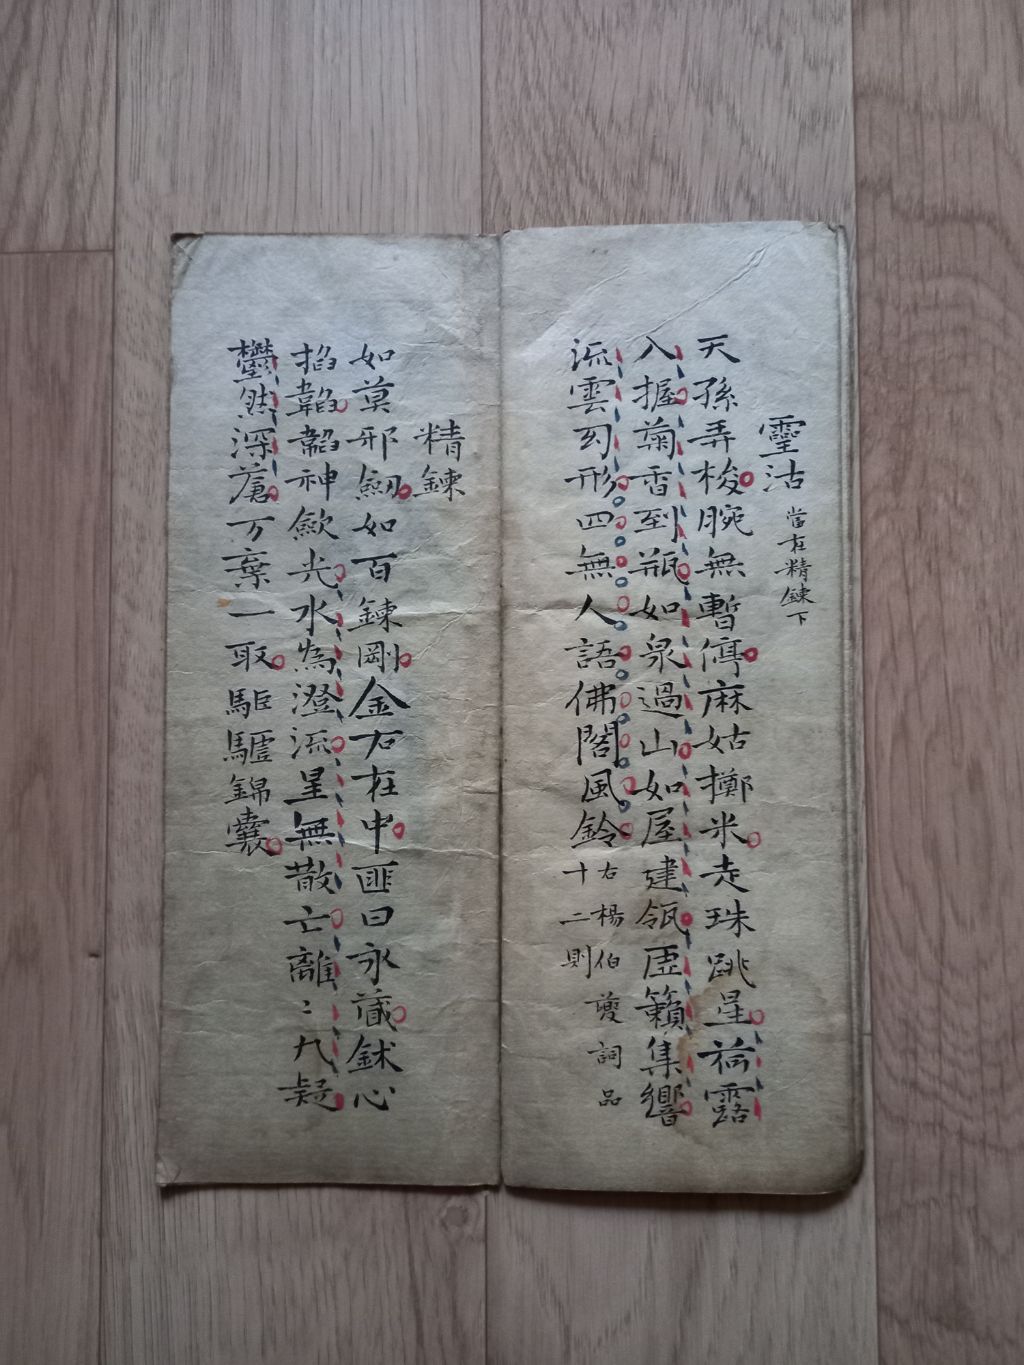 靈活 當在精鍊下
天孫弄梭腕無暫停麻姑擲米走珠跳星荷露
入握菊香到瓶如泉過山如屋建瓴虛籟集響
流雲幻形四無人語佛閣風鈴
右楊伯夔詞品
十二則
精鍊
如莫邪劒如百鍊剛金石在中匪曰永藏鉥心
掐韜韜神歛光水為澄流星無散亡離〻九疑
鬱然深蒼万棄一取駏驉錦囊